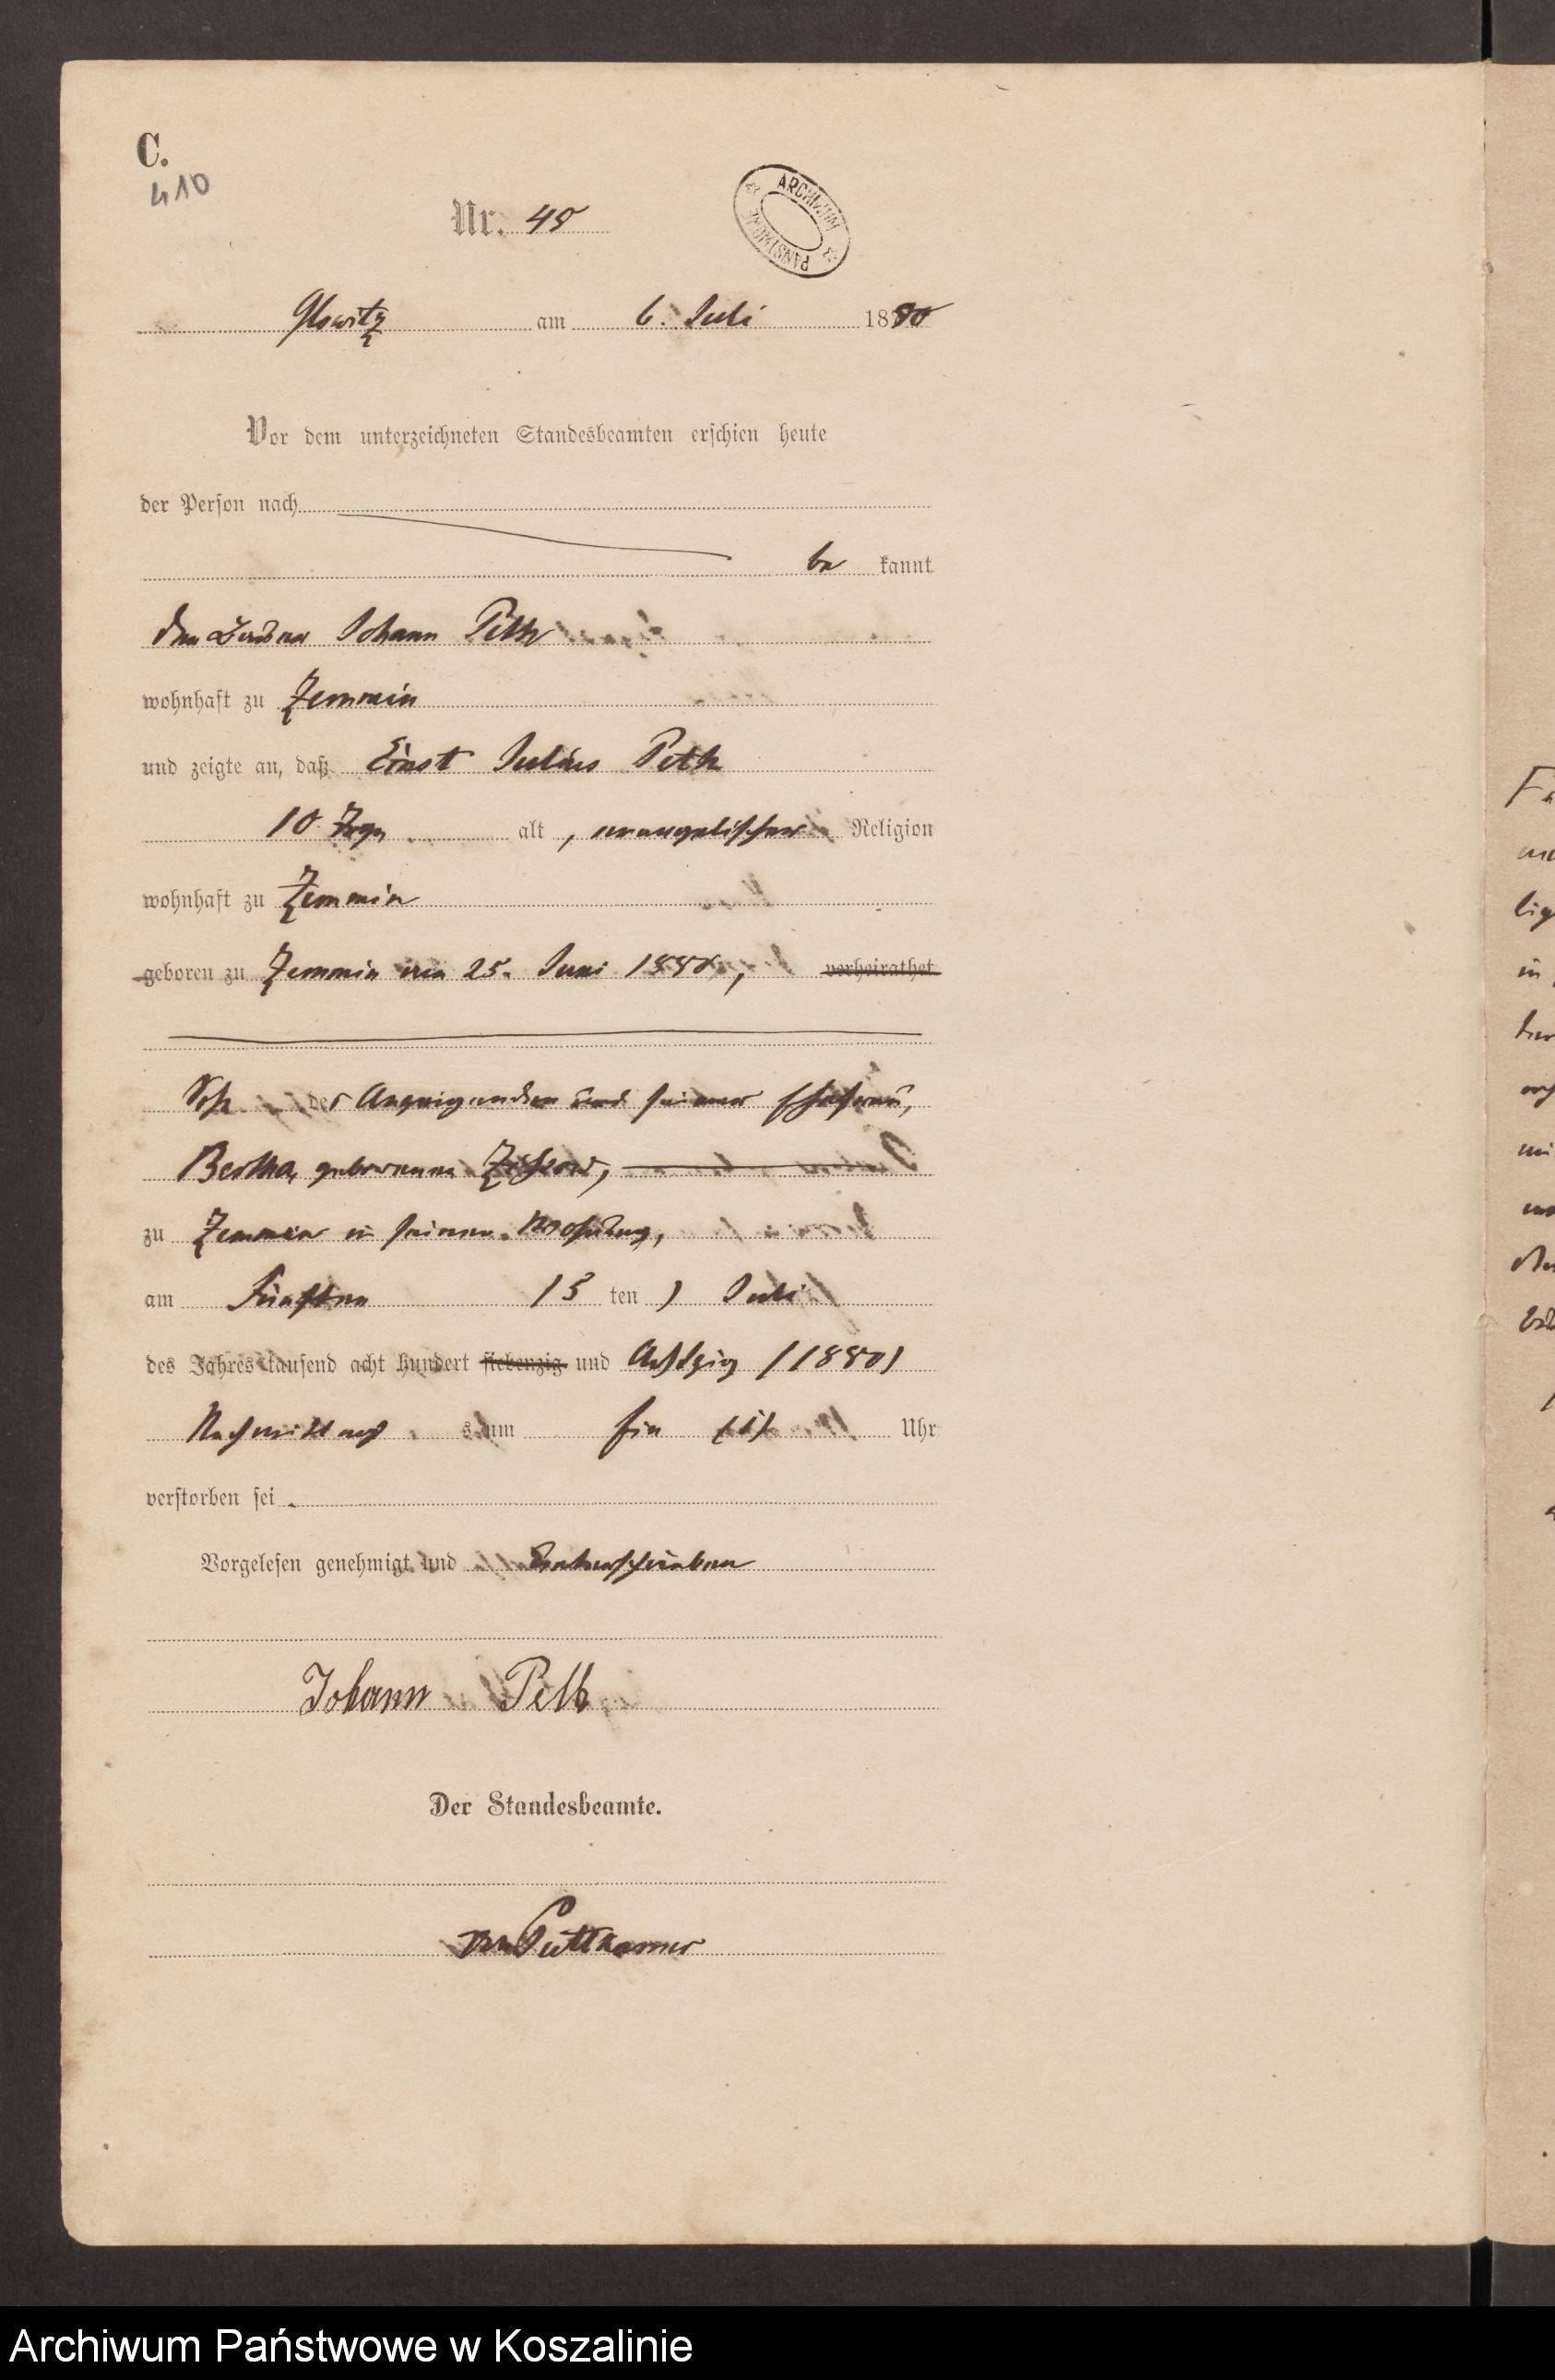 C.
410
Nr. 48
ARCHIWUM PAŃSTWOWE
Glowitz am 6. Juli 1880
Vor dem unterzeichneten Standesbeamten erschien heute
der Person nach
be kannt
Johann Peth
wohnhaft zu Zemmin
und zeigte an, daß Ernst Julius Peth
10 Tage alt, evangelischer Religion
wohnhaft zu Zemmin
geboren zu Zemmin am 25. Juni 1880, verheirathet
Sohn des Anzeigenden und seiner Ehefrau,
Bertha, geborenen
zu Zemmin in seiner Wohnung,
am Fünften (5 ten) Juli
des Jahres tausend acht hundert siebenzig und Achtzig (1880)
Nachmittags um Ein (1) Uhr
verstorben sei.
Vorgelesen genehmigt und Unterschrieben
Johann Peth
Der Standesbeamte.
von Puttkamer
Archiwum Państwowe w Koszalinie